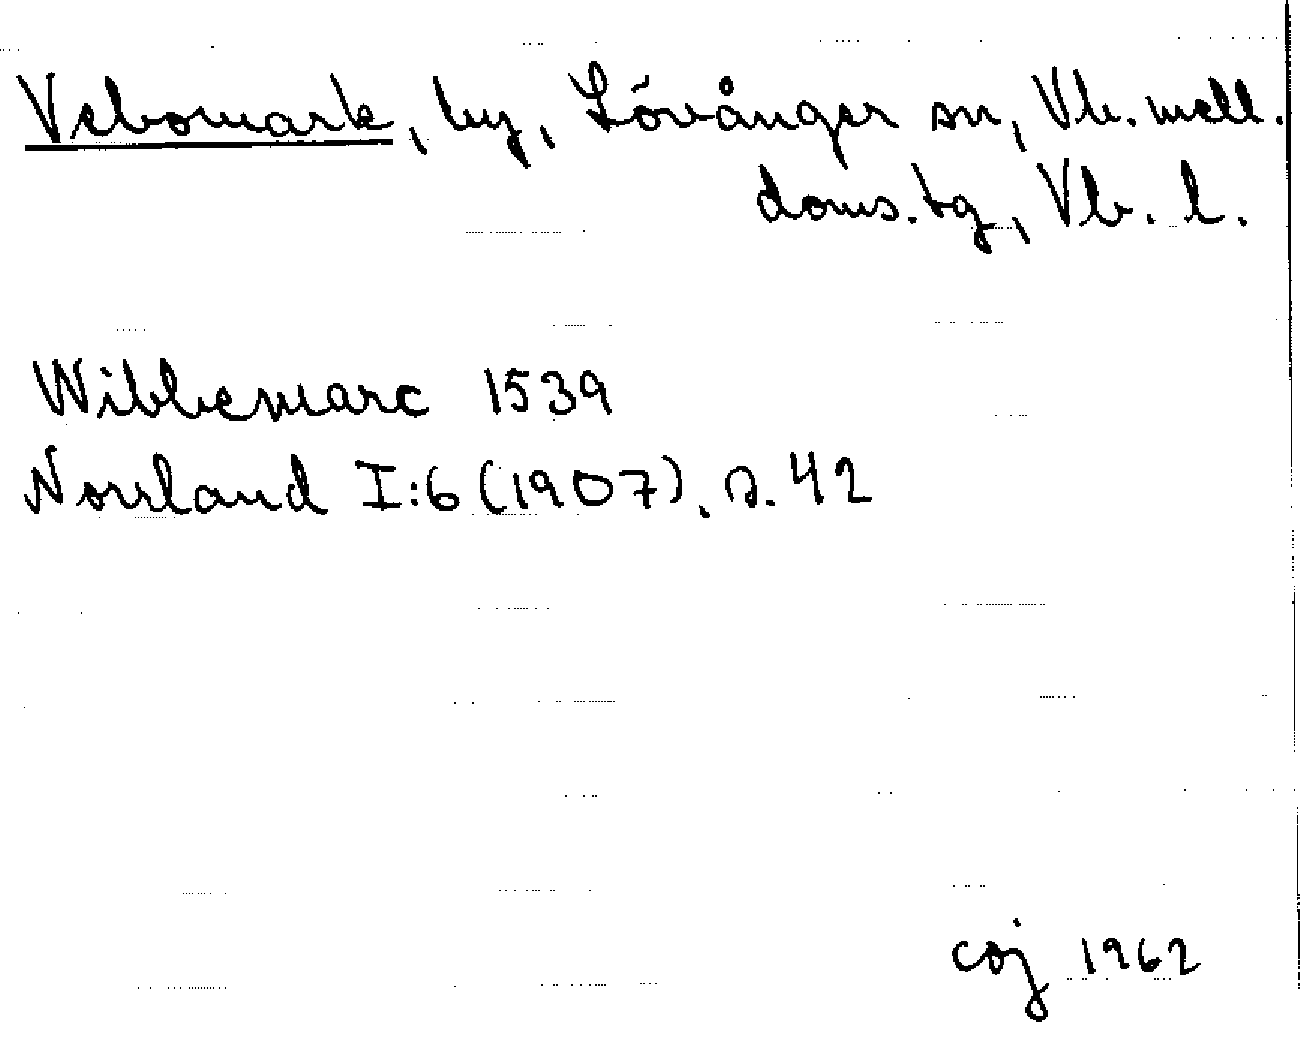 Vebomark, by, Lövånger sn, Vb. mell.
doms. tg, Vb. l.
Wibbemarc 1539
Norrland I:6 (1907), s. 42
coj 1962